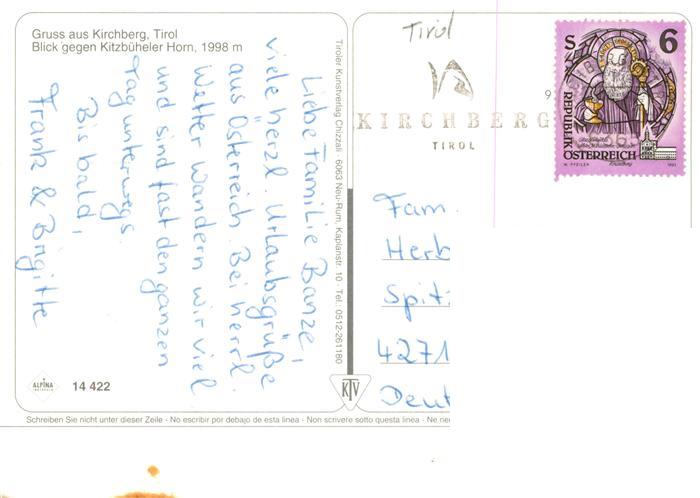 Gruss aus Kirchberg, Tirol
Blick gegen Kitzbüheler Horn, 1998 m
Liebe Familie Banze,
viele herzl. Urlaubsgrüße
aus Österreich. Bei herrl.
Wetter wandern wir viel
und sind fast den ganzen
Tag unterwegs.
Bis bald,
Frank & Brigitte
ALPINA
14 422
Tiroler Kunstverlag Chizzali · 6063 Neu-Rum, Kaplanstr. 10 · Tel. 0512-261180
KTV
Tirol
9
KIRCHBERG
TIROL
S 6
REPUBLIK
ÖSTERREICH
Fam.
Herb
Spit
4271
Deut
Schreiben Sie nicht unter dieser Zeile - No escribir por debajo de esta linea - Non scrivere sotto questa linea - Ne